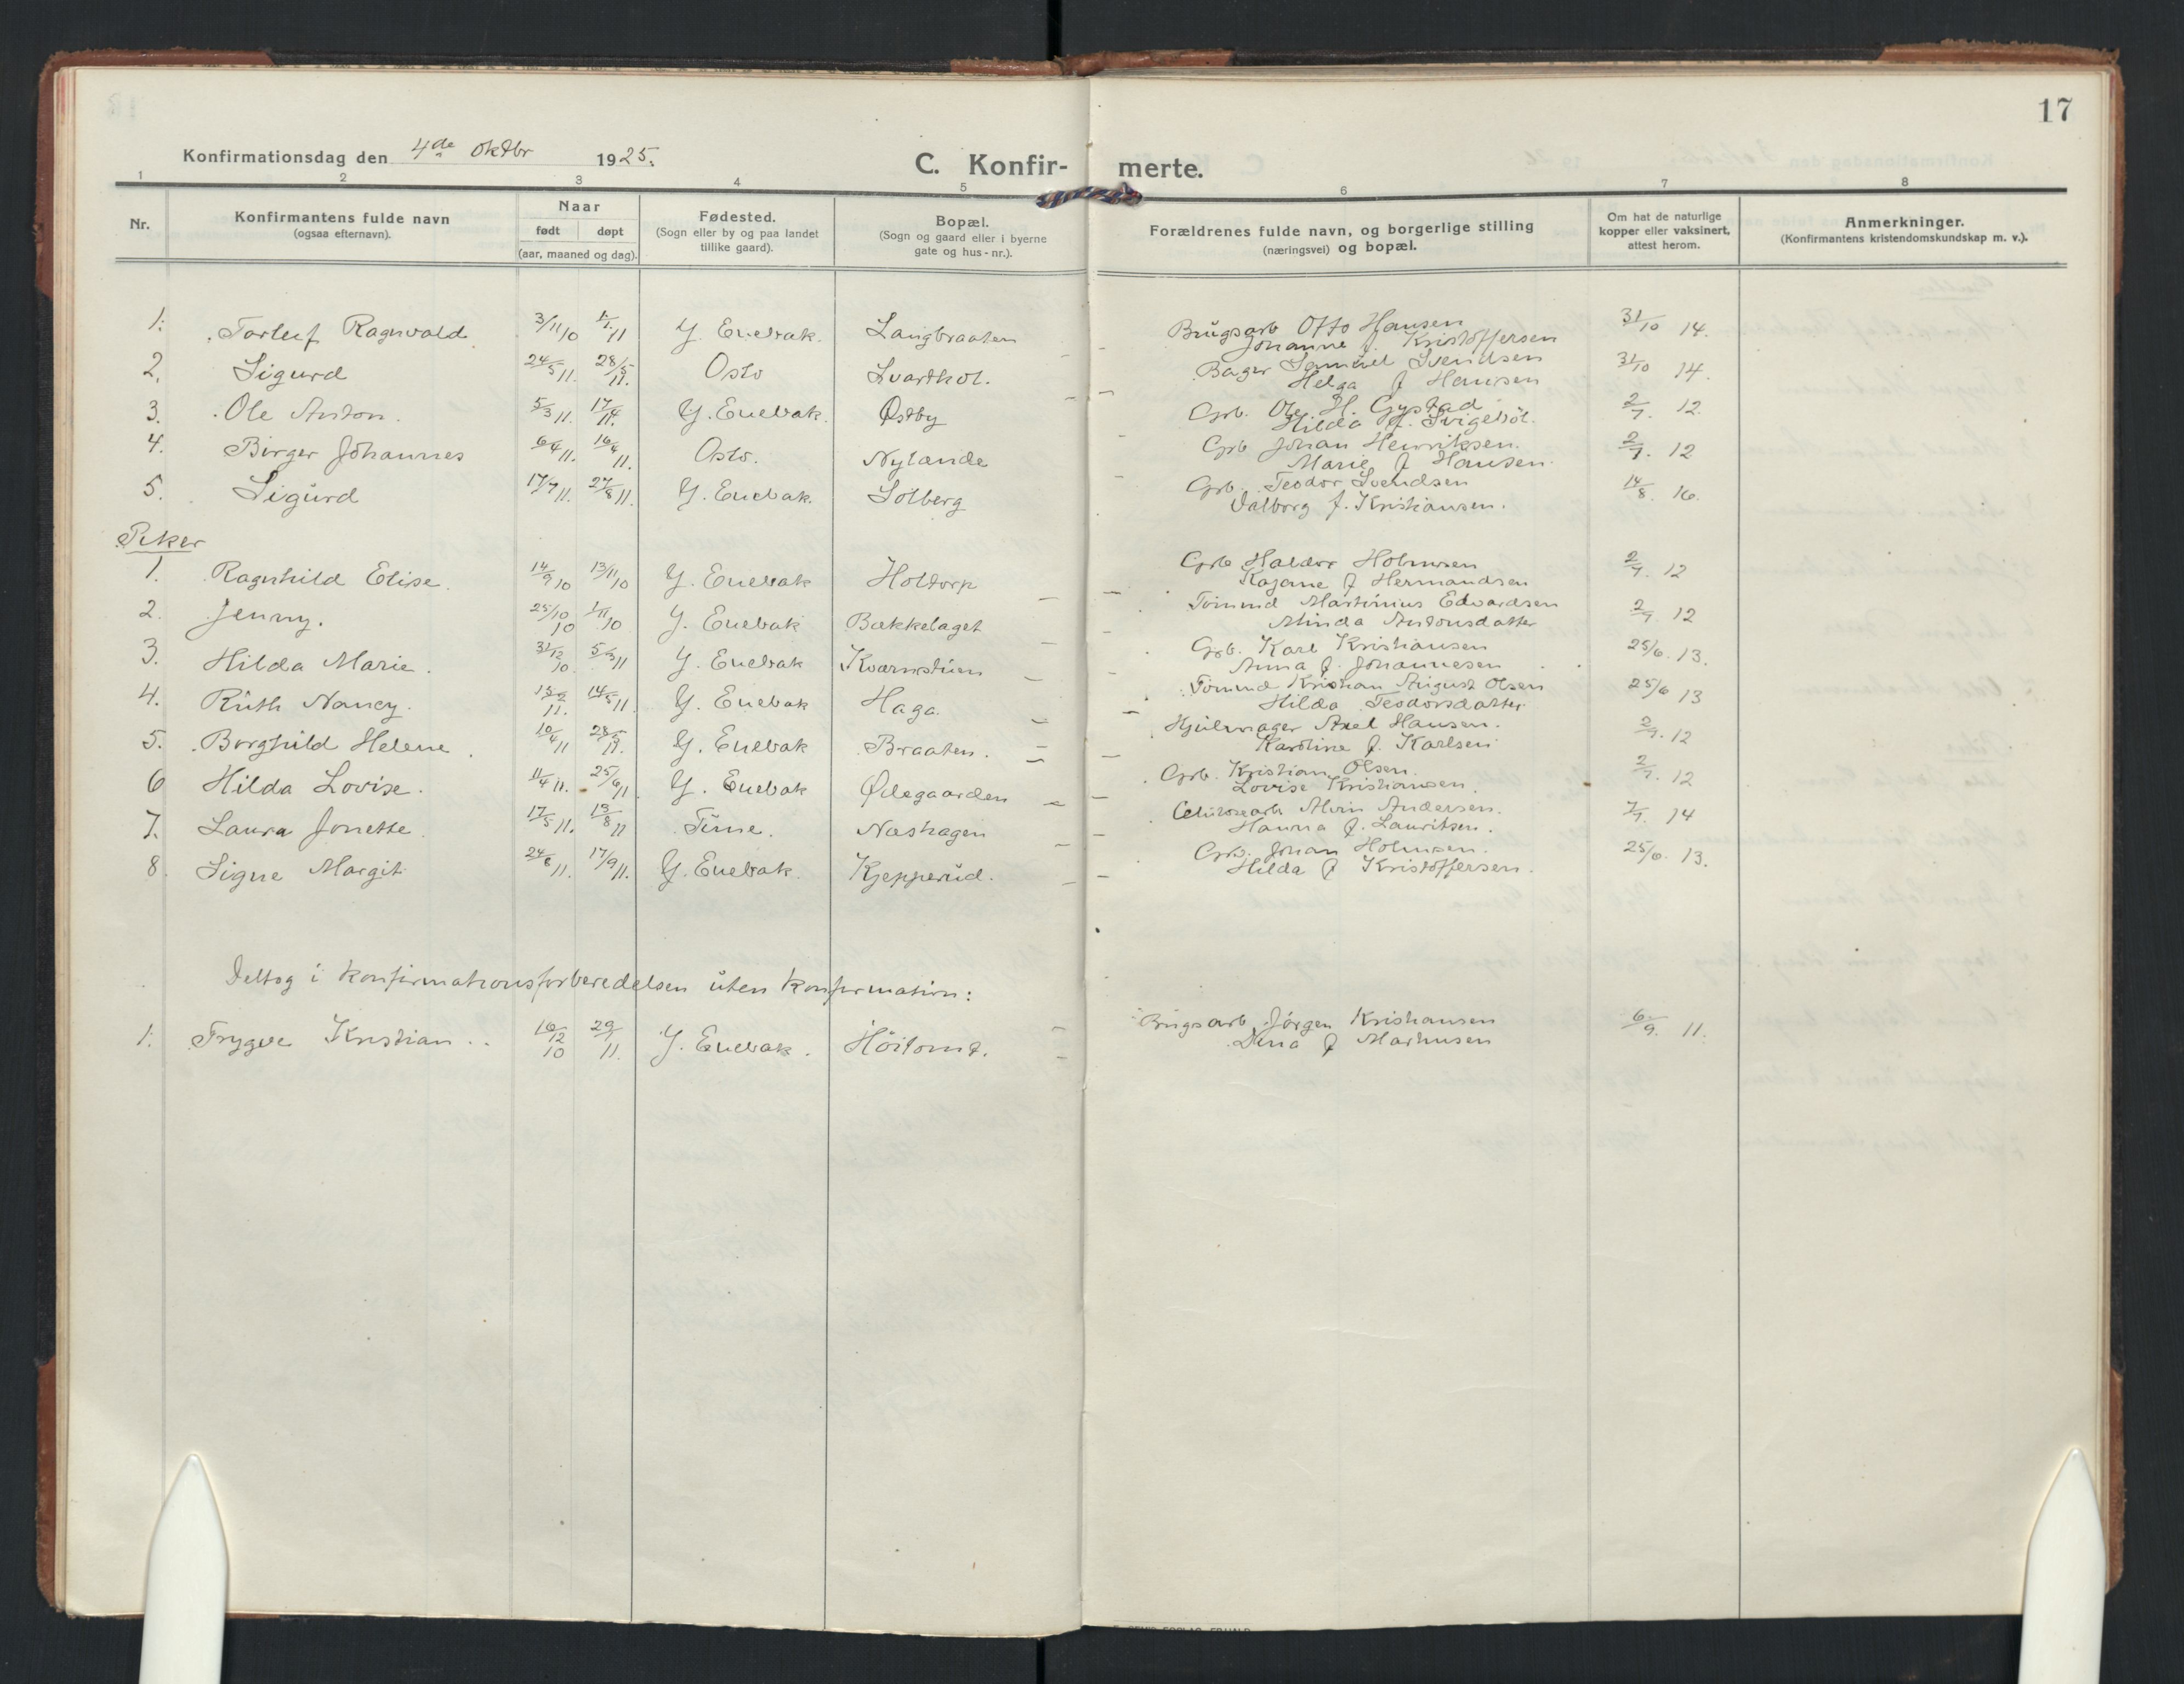 17
Konfirmationsdag den 4de oktbr 1925.
C. Konfir- merte.
1 2 3 4 5 6 7 8
Nr.
Konfirmantens fulde navn
(ogsaa efternavn).
Naar
født døpt
(aar, maaned og dag).
Fødested.
(Sogn eller by og paa landet
tillike gaard).
Bopæl.
(Sogn og gaard eller i byerne
gate og hus-nr.).
Forældrenes fulde navn, og borgerlige stilling
(næringsvei) og bopæl.
Om hat de naturlige
kopper eller vaksinert,
attest herom.
Anmerkninger.
(Konfirmantens kristendomskundskap m. v.).
1. Torleif Ragnvald 3/11 10 1/1 11 Y. Enebak. Langbraaten Brugsarb Otto Hansen 31/10 14.
Johanne f. Kristoffersen
2. Sigurd 24/5 11. 28/5 11. Oslo Svarthol. Bager Samuel Svendsen 31/10 14.
Helga f Hansen
3. Ole Anton. 5/3 11. 17/4 11. Y. Enebak. Østby Grb. Ole H. Gystad 2/7. 12.
Hilda f. Svigebøl.
4. Birger Johannes 6/4 11. 16/4 11. Oslo. Nylænde Grb Johan Henriksen. 2/7. 12
Marie f Hansen.
5. Sigurd 17/7 11. 27/8 11. Y. Enebak. Solberg Grb. Teodor Svendsen 14/8. 16.
Valborg f. Kristiansen.
Piker
1. Ragnhild Elise. 14/9 10 13/11 10 Y. Enebak Holtorp Grb Haldor Holmsen 2/7. 12
Kajane f Hermandsen
2. Jenny. 25/10 10 1/11 10 Y. Enebak Bækkelaget Tømmd Martinius Edvardsen 2/7 12
Alinda Antonsdatter
3. Hilda Marie. 31/12 10. 5/3 11 Y. Enebak Kværnstuen Grb. Karl Kristiansen 25/6. 13.
Anna f. Johannesen
4. Ruth Nancy. 15/2 11. 14/5 11. Y. Enebak Haga. Tømmd Kristian August Olsen 25/6 13
Hilda Teodorsdatter
5. Borghild Helene. 10/4 11 28/5 11. Y. Enebak Braaten. Hjulmager Axel Hansen. 2/7. 12
Karoline f. Karlsen
6 Hilda Lovise. 11/4 11. 25/6 11. Y. Enebak Ødegaarden Grb. Kristian Olsen. 2/7. 12
Lovise Kristiansen.
7. Laura Jonette. 17/5 11. 13/8 11 Time. Næshagen Celulosearb Alvin Andersen. 7/7. 14
Hanna f. Lauritsen.
8. Signe Margit 24/8 11. 17/9 11. Y. Enebak. Kjepperud. Grb. Johan Holmsen. 25/6. 13.
Hilda f Kristoffersen.
Deltog i konfirmationsforberedelsen uten konfirmation:
1. Trygve Kristian.. 16/12 10 29/1 11. Y. Enebak. Høitomt. Brugsarb. Jørgen Kristiansen 6/9. 11.
Dina f Martinsen